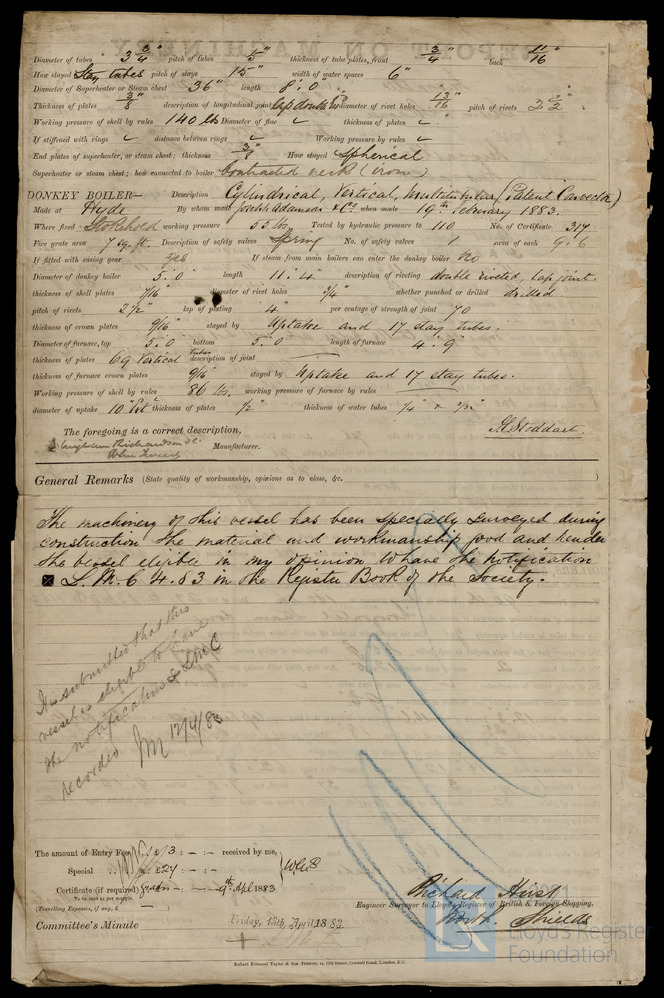 Diameter of tubes 3 3/4" pitch of tubes 5" thickness of tube plates, front 3/4" back 11/16"
How stayed Stay tubes pitch of stays 15" width of water spaces 6"
Diameter of Superheater or Steam chest 36" length 8'.0
Thickness of plates 3/8 description of longitudinal joint Lap double R diameter of rivet holes 13/16 pitch of rivets 3 1/2
Working pressure of shell by rules 140 lbs Diameter of flue ✓ thickness of plates ✓
If stiffened with rings ✓ distance between rings ✓ Working pressure by rules ✓
End plates of superheater, or steam chest; thickness How stayed Spherical
Superheater or steam chest; how connected to boiler Contracted neck (iron)
DONKEY BOILER— Description Cylindrical, Vertical, Multitubular (Patent Convector)
Made at Hyde By whom made Joseph Adamson & Co. when made 19th February 1883.
Where fixed Stokehold working pressure 55 lbs Tested by hydraulic pressure to 110 No. of Certificate 317
Fire grate area 7 sq. ft. Description of safety valves Spring No. of safety valves 1 area of each 9.6
If fitted with easing gear yes If steam from main boilers can enter the donkey boiler No
Diameter of donkey boiler 5'.0" length 11'.4" description of riveting double riveted, lap joint
thickness of shell plates 7/16" diameter of rivet holes 3/4" whether punched or drilled drilled
pitch of rivets 2 1/2" lap of plating 4" per centage of strength of joint 70
thickness of crown plates 9/16" stayed by Uptake and 17 stay tubes.
Diameter of furnace, top 5'.0" bottom 5'.0" length of furnace 4'.9"
thickness of plates 69 Vertical tubes description of joint
thickness of furnace crown plates 9/16" stayed by Uptake and 17 stay tubes.
Working pressure of shell by rules 86 lbs. working pressure of furnace by rules
diameter of uptake 10" thickness of plates 1/2" thickness of water tubes
The foregoing is a correct description,
Wigham Richardson & Co. Manufacturer.
General Remarks (State quality of workmanship, opinions as to class, &c.
The machinery of this vessel has been specially surveyed during
construction the material and workmanship good and render
the vessel eligible in my opinion to have the notification
L.M.C 4.83 in the Register Book of the Society.
It is submitted that this
vessel is eligible to have
the notification LMC
recorded JM 12/4/83
The amount of Entry Fee £3 : - : - received by me,
Special £24 : - : -
Certificate (if required) : - : - 9th Apl 1883
To be sent as per margin.
(Travelling Expenses, if any, £
Richard Hirst
Engineer Surveyor to Lloyd's Register of British & Foreign Shipping,
North Shields
Committee's Minute Friday, 13th April 1883
Robert Edmund Taylor & Son, Printers, 19, Old Street, Goswell Road, London, E.C.
Lloyd's Register
Foundation